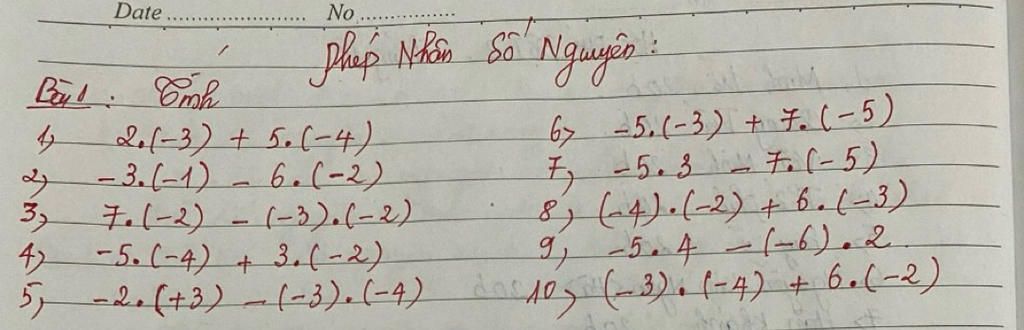 Date ........................ No .................
Phép Nhân Số Nguyên :
Bài 1 : Tính
1) 2.(-3) + 5.(-4)
2) -3.(-1) - 6.(-2)
3) 7.(-2) - (-3).(-2)
4) -5.(-4) + 3.(-2)
5) -2.(+3) - (-3).(-4)
6) -5.(-3) + 7.(-5)
7) -5.3 - 7.(-5)
8) (-4).(-2) + 6.(-3)
9) -5.4 - (-6).2
10) (-3).(-4) + 6.(-2)